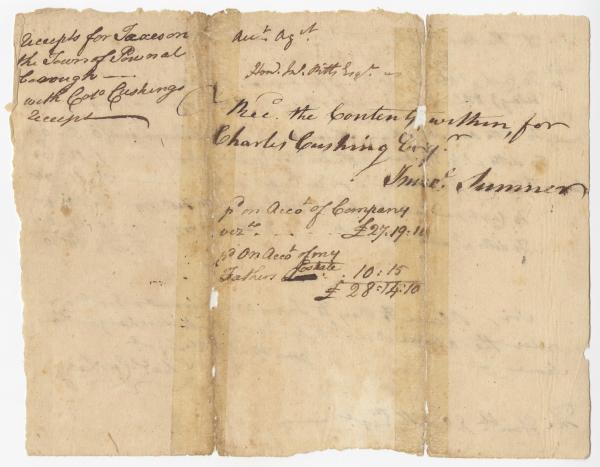 Receipts for Taxes on
the Town of Pownal
borough —
with Colo Cushings
Receipt
Acct. Agst.
Honl. Js. Pitts Esqr.
Recd. the Contents within, for
Charles Cushing Esqr.
Sumner
pd on Accot of Company
vizt £27.19:10
pd On Accot of my
Fathers Estate 10:15
£ 28:14:10